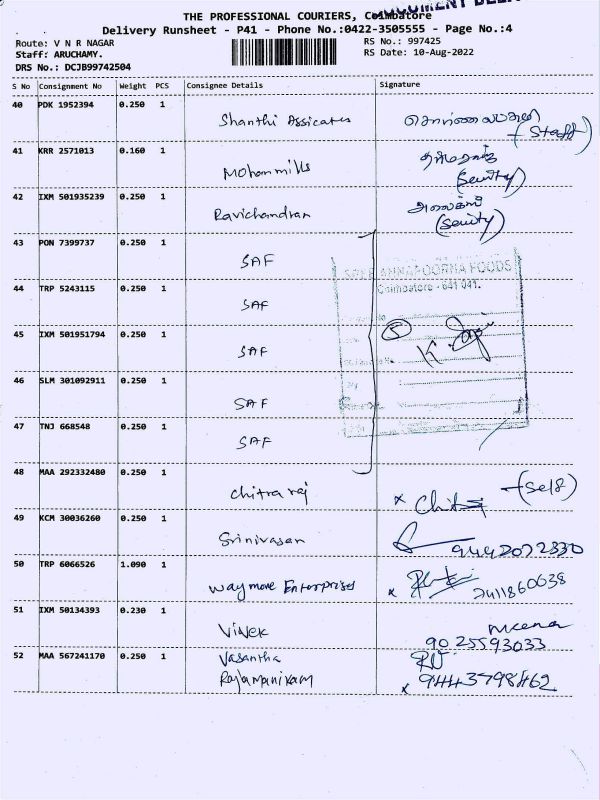 DOCUMENT DELIV
THE PROFESSIONAL COURIERS, Coimbatore
Delivery Runsheet - P41 - Phone No.:0422-3505555 - Page No.:4
Route: V N R NAGAR RS No.: 997425
Staff: ARUCHAMY. RS Date: 10-Aug-2022
DRS No.: DCJB99742504
S No Consignment No Weight PCS Consignee Details Signature
40 PDK 1952394 0.250 1 Shanthi Assicates
(Staff)
41 KRR 2571013 0.160 1 Mohan mills
(Seurity)
42 IXM 501935239 0.250 1 Ravichandran
(Seurity)
43 PON 7399737 0.250 1 SAF
SREE ANNAPOORNA FOODS
Coimbatore - 641 041.
44 TRP 5243115 0.250 1 SAF
45 IXM 501951794 0.250 1 SAF
5
46 SLM 301092911 0.250 1 SAF
47 TNJ 668548 0.250 1 SAF
48 MAA 292332480 0.250 1 chitra raj x Chitra (Self)
49 KCM 30036260 0.250 1 Srinivasan 9442072330
50 TRP 6066526 1.090 1 waymove Enterprises x
51 IXM 50134393 0.230 1 Vivek meena
9025593033
52 MAA 567241170 0.250 1 Vasantha
Rajamanikam x 9443798462